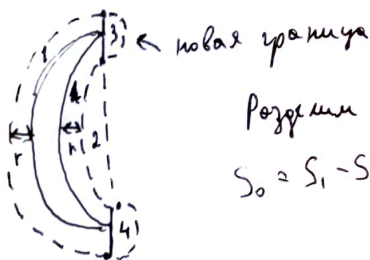 1
3
← новая граница
r
r
2
4
Разделим
S₀ = S₁ - S